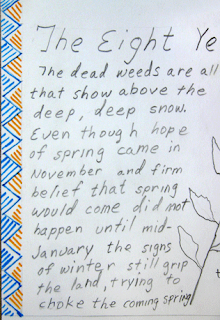 The Eight Ye
The dead weeds are all
that show above the
deep, deep snow.
Even though hope
of spring came in
November and firm
belief that spring
would come did not
happen until mid-
January the signs
of winter still grip
the land, trying to
choke the coming spring